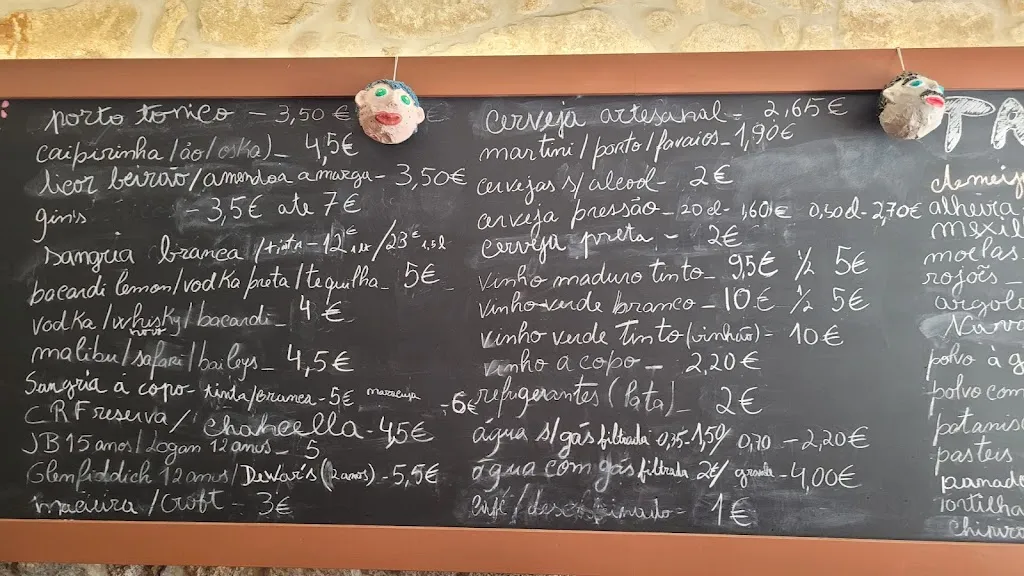 porto tonico - 3,50€
caipirinha/ão/oska) - 4,5€
licor beirão/amendoa amarga - 3,50€
gins - 3,5€ ate 7€
sangria branca /tinta - 12€ /23€ 1,5l
bacardi lemon/vodka preta/tequilha - 5€
vodka/whisky/bacardi - 4€
malibu/safari/baileys - 4,5€
Sangria à copo - tinta/branca - 5€ maracuja - 6€
CRF reserva/
JB 15 anos/Logan 12 anos - 5
Glenfiddich 12 anos/Dewar's (12 anos) - 5,5€
macieira/Croft - 3€
cerveja artesanal - 2,65€
martini/porto/favaios - 1,90€
cervejas s/alcool - 2€
cerveja pressão - 20cl - 1,60€ 0,50cl - 2,70€
cerveja preta - 2€
vinho maduro tinto - 9,5€ ½ 5€
vinho verde branco - 10€ ½ 5€
vinho verde Tinto (vinhão) - 10€
vinho a copo - 2,20€
refrigerantes (lata) - 2€
água s/gás filtrada 0,35-1,50/0,70 - 2,20€
água com gás filtrada 2€/ grande - 4,00€
café/descafeinado - 1€
PA
alheira
mexil
moelas
rojões
polvo à g
polvo com
patanis
pasteis
panado
tortilha